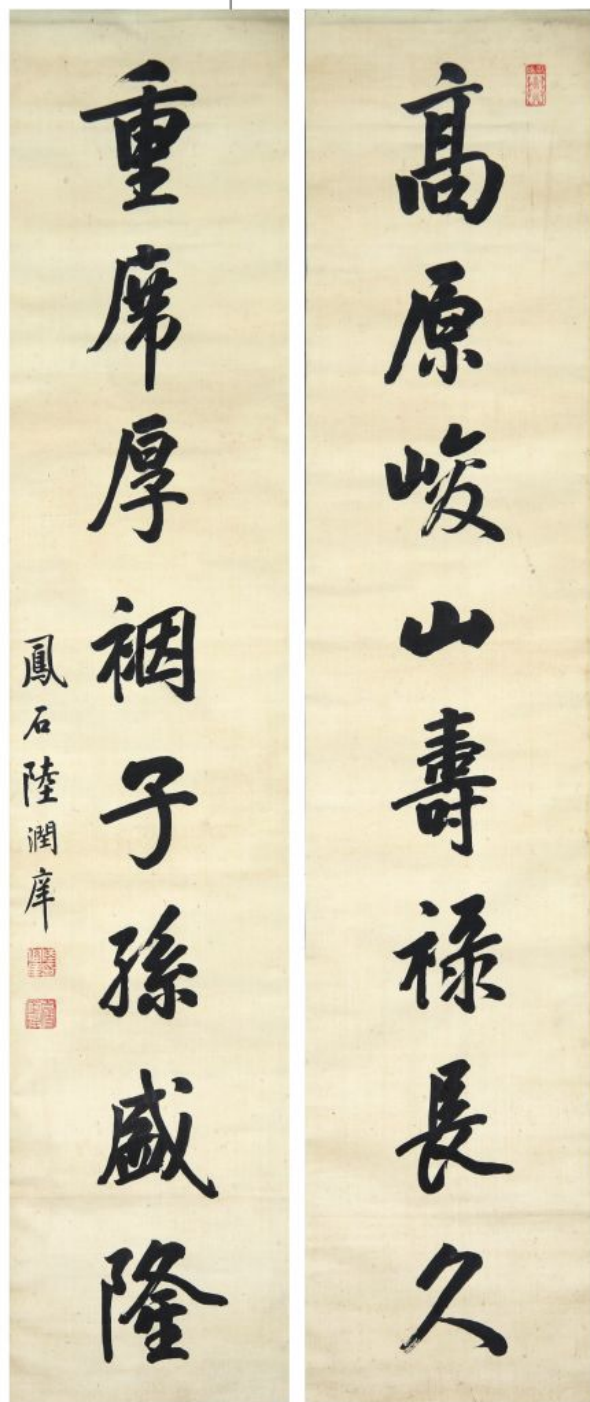 高原峻山壽祿長久
重席厚裀子孫盛隆
鳳石陸潤庠